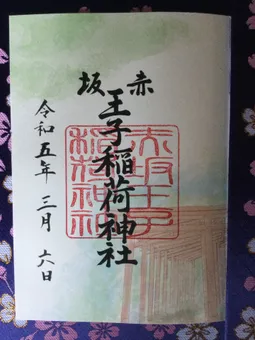 赤坂
王子稲荷神社
赤坂王子
稲荷神社
令和五年 三月 六日